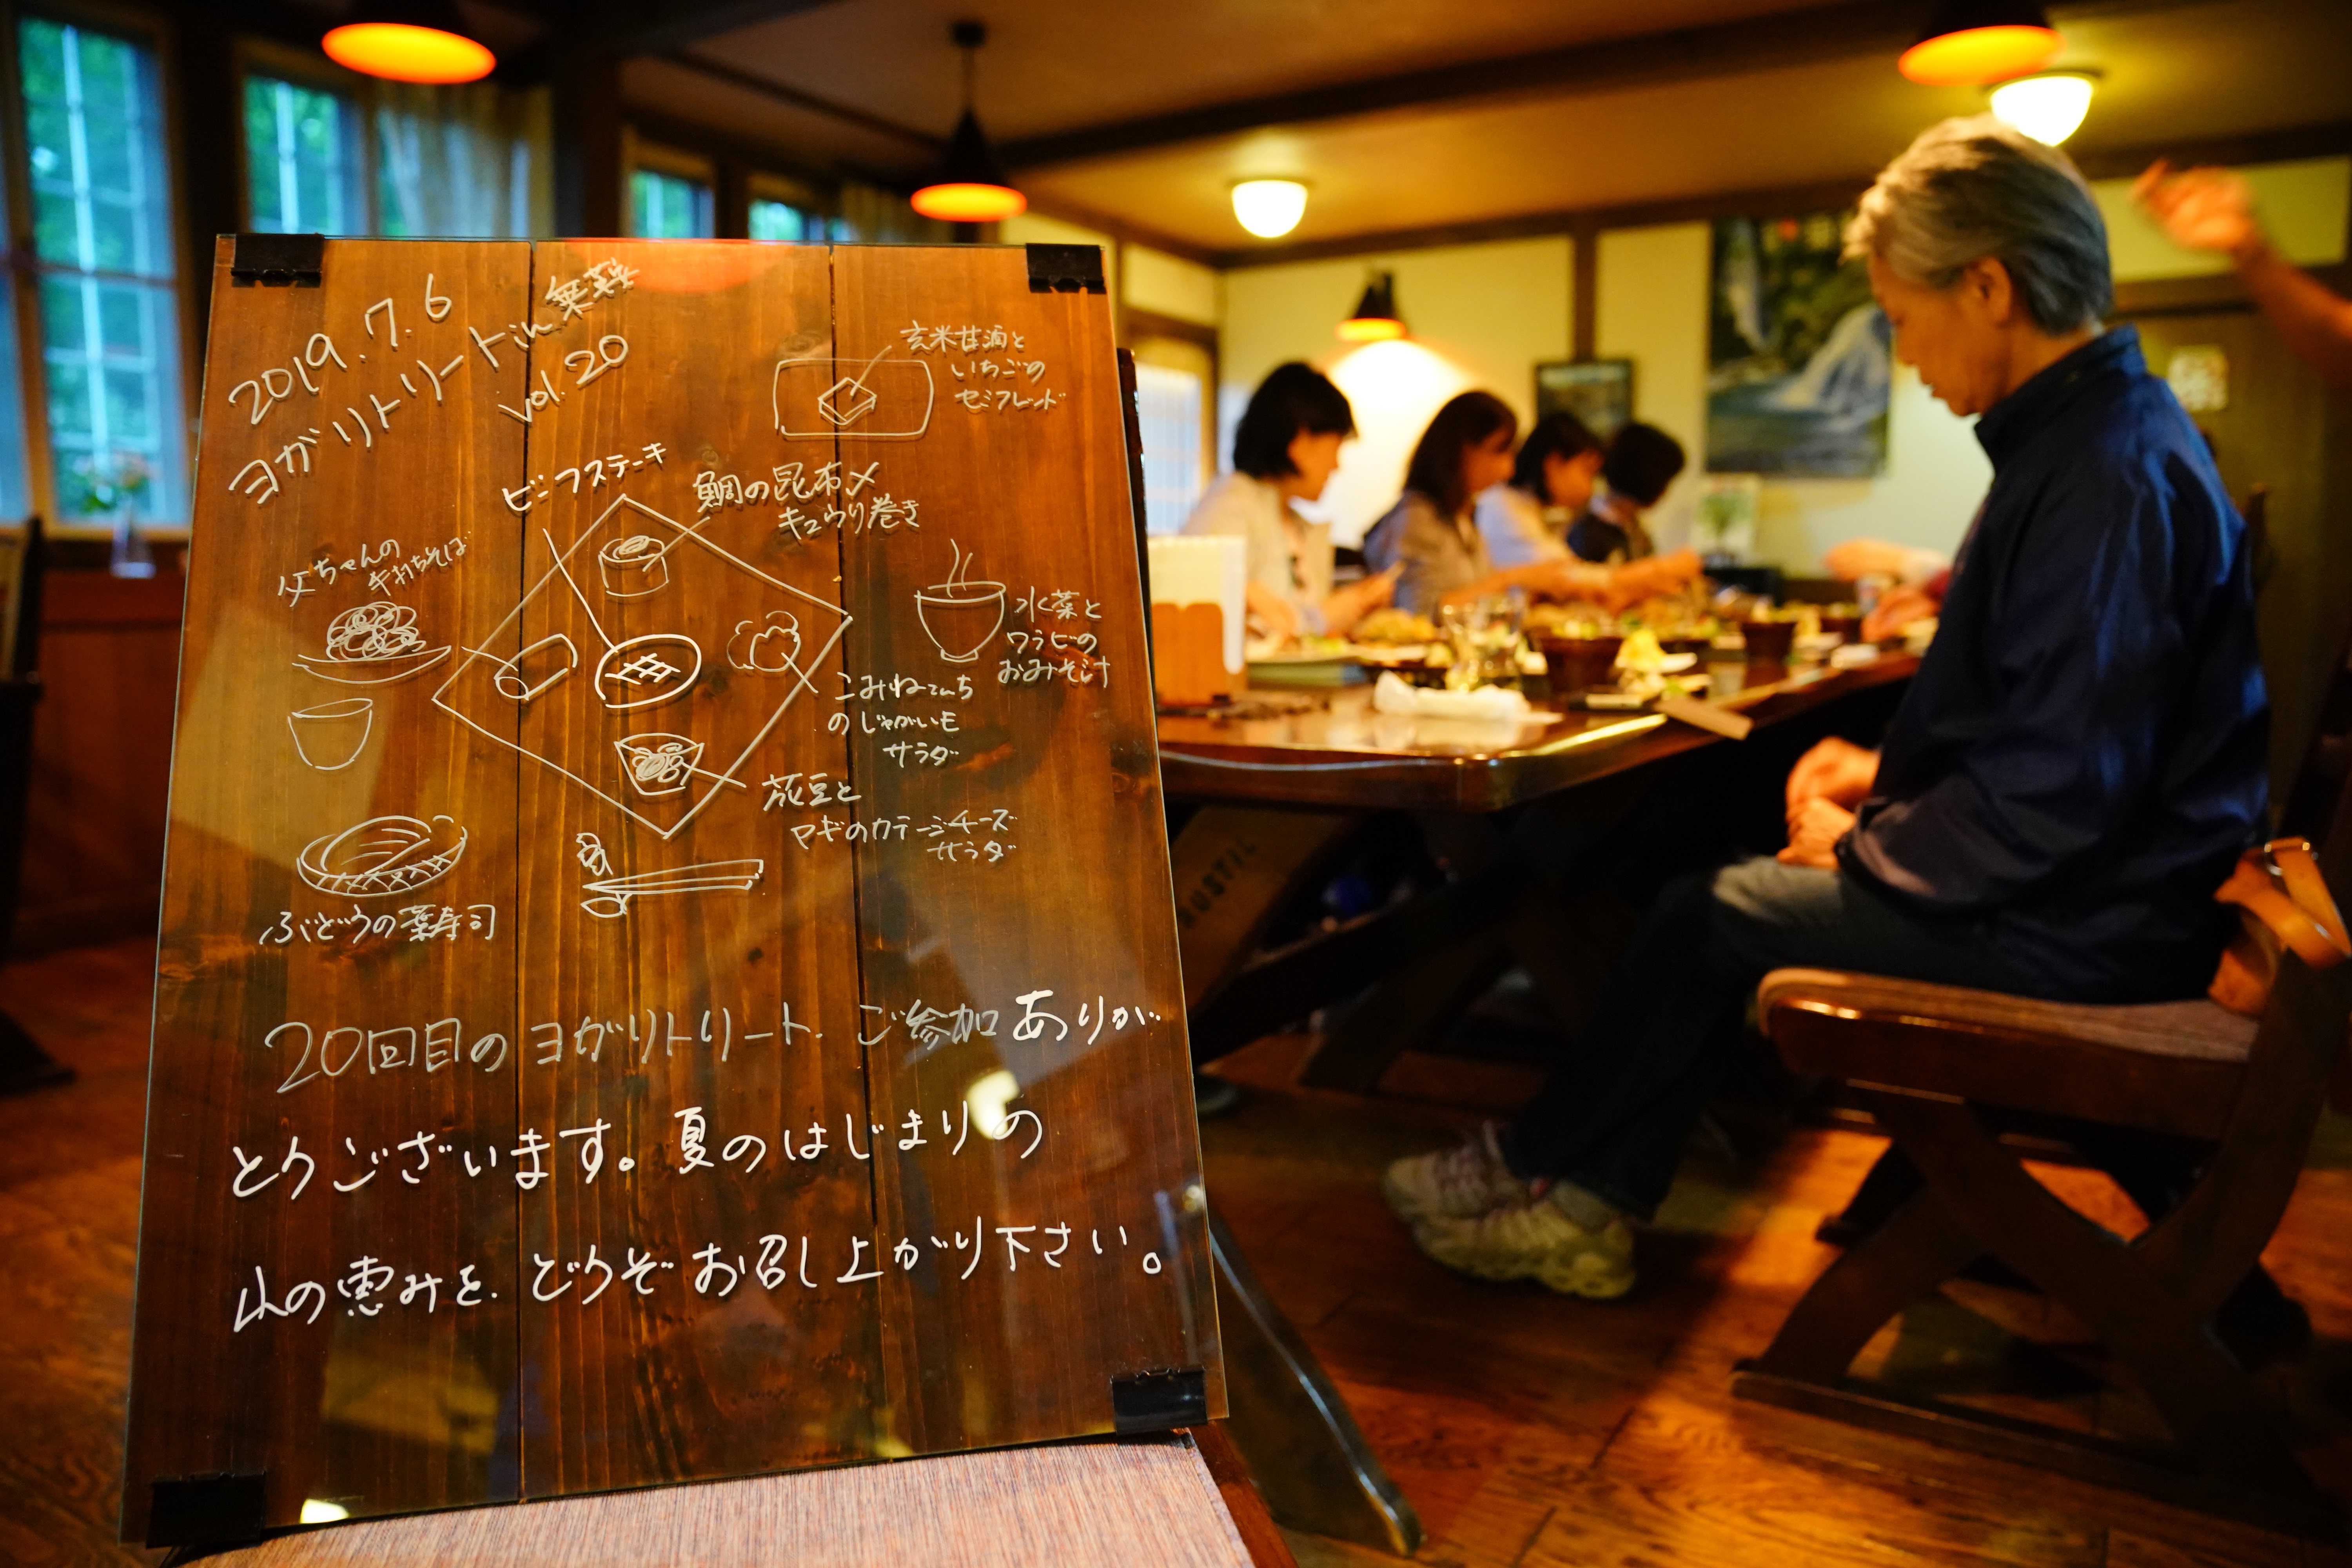 2019.7.6
ヨガリトリートin
vol.20
玄米甘酒と
いちごの
セミフレッド
ビーフステーキ
鯛の昆布〆
キュウリ巻き
父ちゃんの
手打ちそば
水菜と
ワラビの
おみそ汁
こみねてんち
のじゃがいも
サラダ
豆と
ヤギのカテージチーズ
サラダ
ぶどうの葉寿司
20回目のヨガリトリート、ご参加ありが
とうございます。夏のはじまりの
山の恵みを、どうぞお召し上がり下さい。
RUSTIC